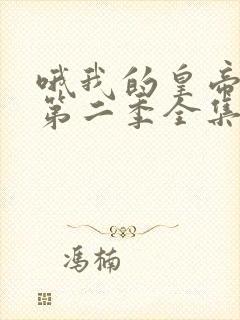 哦我的皇帝
第二季全集
冯楠